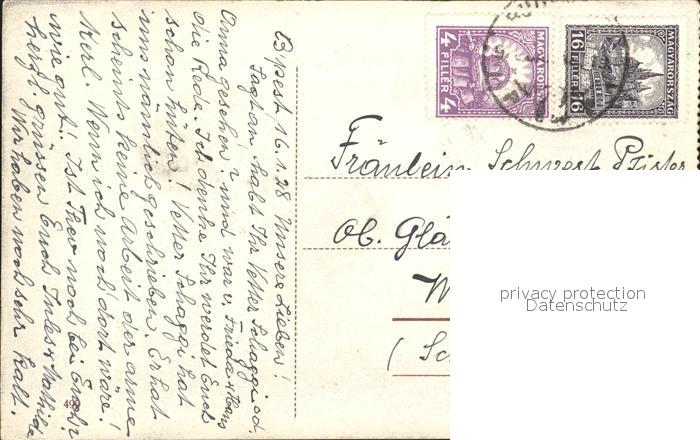 Bpest, 16.1.28 Unsere Lieben!
Sagt an, habt Ihr Vetter Schaggi od.
Anna gesehen? und war v. Frieda & Hans
die Rede. Ich denke Ihr werdet Euch
schon hüten! Vetter Schaggi hat
uns nämlich geschrieben. Er hat
scheints keine Arbeit der arme
Kerl. Wenn ich noch dort wäre!
wie gut! Ist Theo noch bei Euch?
herzl. grüssen Euch Jules & Mathilde
Wir haben noch sehr kalt.
4 MAGYARORSZÁG
FILLÉR 4
16 MAGYARORSZÁG
FILLÉR 16
Fräulein Schwest. Pfister
Ob. Glä
W
(Sc
privacy protection
Datenschutz